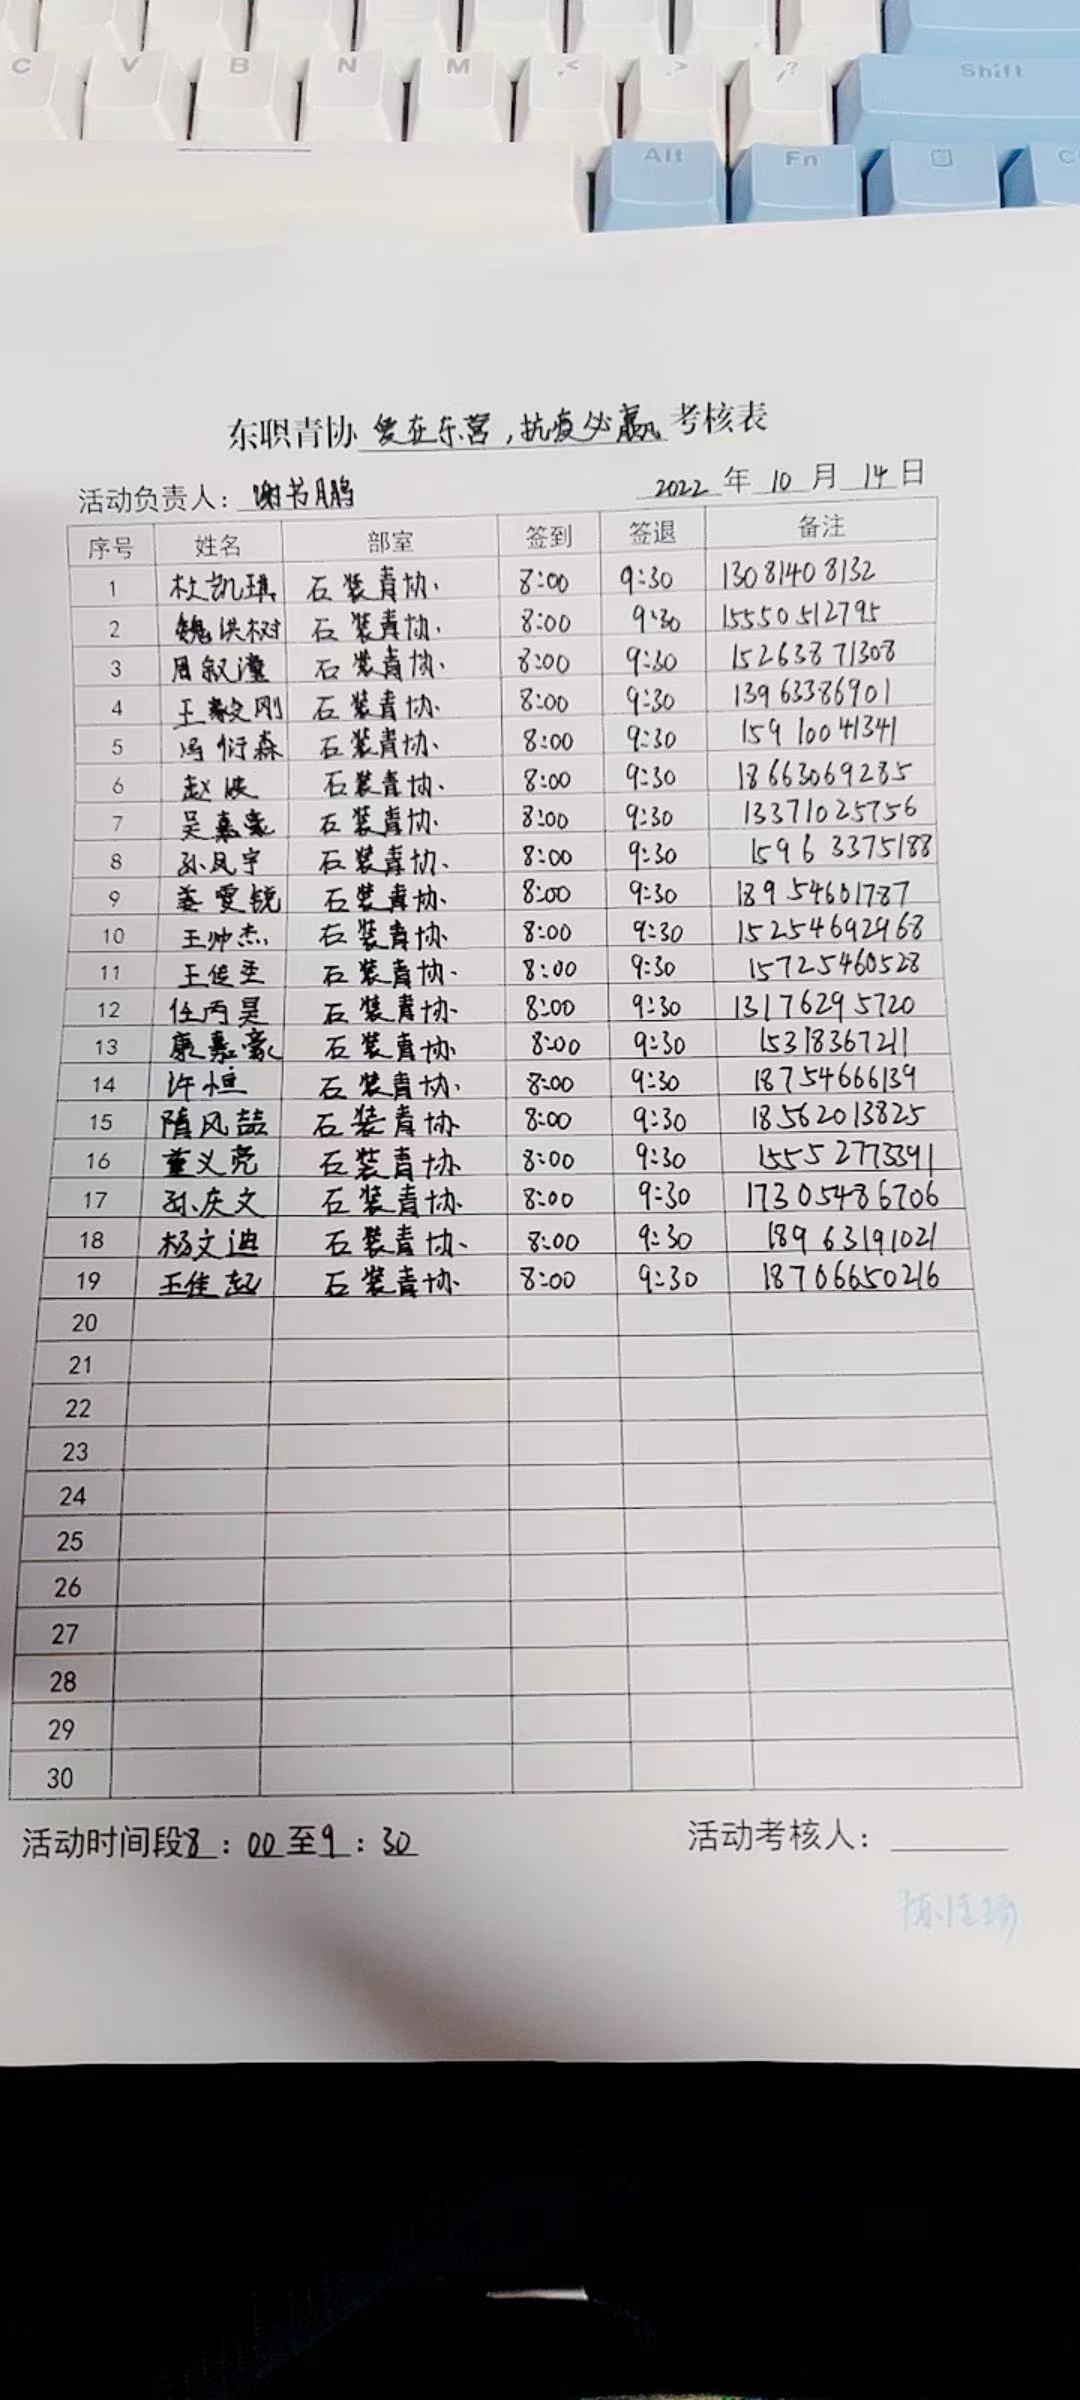 C V B N M ,< .> /? Shift
Alt Fn
东职青协 爱在东营，抗疫必赢 考核表
活动负责人：谢书鹏 2022 年 10 月 14 日
序号 姓名 部室 签到 签退 备注
1 杜凯琪 石装青协 8:00 9:30 13081408132
2 魏洪树 石装青协 8:00 9:30 15550512795
3 周叙潼 石装青协 8:00 9:30 15263871308
4 王毅刚 石装青协 8:00 9:30 13963386901
5 冯衍森 石装青协 8:00 9:30 15910041341
6 赵 石装青协 8:00 9:30 18663069285
7 吴嘉豪 石装青协 8:00 9:30 13371025756
8 孙凤宇 石装青协 8:00 9:30 15963375188
9 姜雯锐 石装青协 8:00 9:30 18954601787
10 王帅杰 石装青协 8:00 9:30 15254692968
11 王佳圣 石装青协 8:00 9:30 15725460528
12 任丙昊 石装青协 8:00 9:30 13176295720
13 康嘉豪 石装青协 8:00 9:30 15318367211
14 许恒 石装青协 8:00 9:30 18754666139
15 隋风喆 石装青协 8:00 9:30 18562013825
16 董义亮 石装青协 8:00 9:30 15552773391
17 孙庆文 石装青协 8:00 9:30 17305486706
18 杨文迪 石装青协 8:00 9:30 18963191021
19 王佳起 石装青协 8:00 9:30 18706650216
20
21
22
23
24
25
26
27
28
29
30
活动时间段 8 : 00 至 9 : 30 活动考核人：